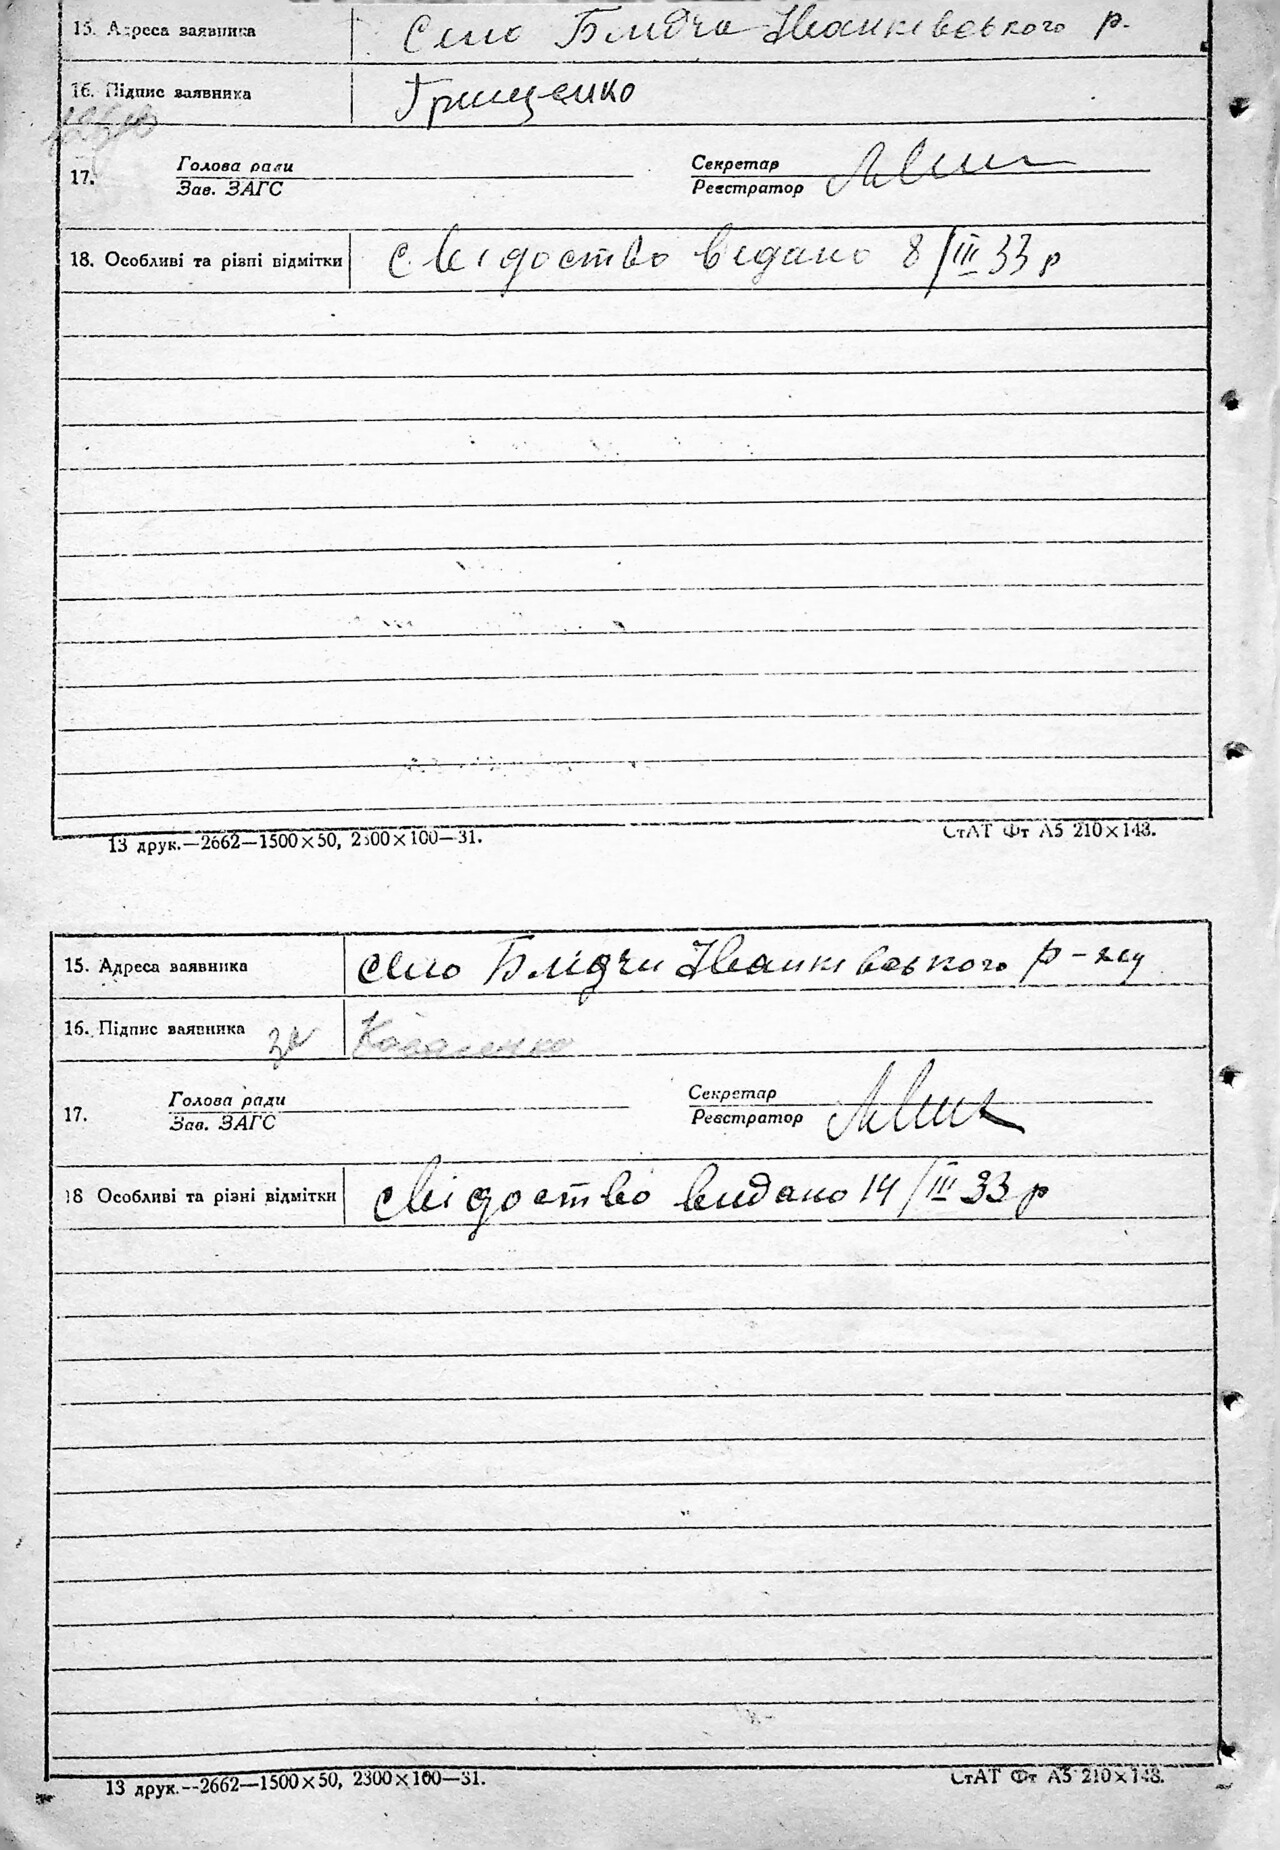 15. Адреса заявника Село Блидча Іванківського р.
16. Підпис заявника Грищенко
17. Голова ради Секретар
Зав. ЗАГС Реєстратор
18. Особливі та різні відмітки свідоство видано 8/III 33 р
13 друк.—2662—1500×50, 2300×100—31. СтАТ Фт А5 210×148.
15. Адреса заявника село Блидчи Іванківського р-ну
16. Підпис заявника за Коваленко
17. Голова ради Секретар
Зав. ЗАГС Реєстратор
18 Особливі та різні відмітки свідоство видано 14/III 33 р
13 друк.—2662—1500×50, 2300×100—31. СтАТ Фт А5 210×148.